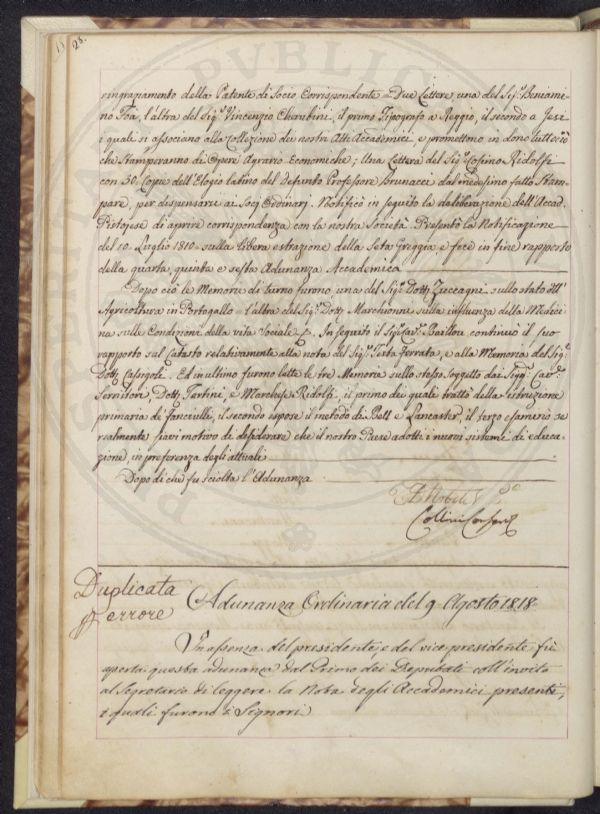 25.
ringraziamento della Patente di Socio Corrispondente = Due Lettere, una del Sigr. Beniami-
no Foà, l'altra del Sigr. Vincenzio Cherubini, il primo Tipografo a Reggio, il secondo a Jesi
i quali si associano alla Collezione dei nostri Atti Accademici, e promettono in dono tutto ciò
che stamperanno di Opere Agrario Economiche; Una Lettera del Sigr. Cosimo Ridolfi
con 50. Copie dell'Elogio latino del defunto Professore Brunacci dal medesimo fatto Stam-
pare, per dispensarsi ai Socj Ordinarj. Notificò in seguito la deliberazione dell'Accad.
Pistojese di aprire corrispondenza con la nostra Società. Presentò la Notificazione
del 10. Luglio 1810. sulla libera estrazione della Seta Greggia e fece in fine rapporto
della quarta, quinta e sesta Adunanza Accademica
Dopo ciò le Memorie di turno furono, una del Sigr. Dott. Zuccagni sullo stato dell'
Agricoltura in Portogallo = l'altra del Sigr. Dott. Marchionni sulla influenza della Medeci-
na sulle Condizioni della vita Sociale. In seguito il Sigr. Cavr. Baillou continuò il suo
rapporto sul Catasto relativamente alla nota del Sigr. Testa Ferrata, e alla Memoria del Sigr.
Dott. Ed in ultimo furono lette le tre Memorie sullo stesso soggetto dai Sigg. Cavr.
Sernitori, Dott. Tartini, e Marchese Ridolfi, il primo dei quali trattò della istruzione
primaria de' fanciulli, il secondo espose il metodo di Bell e Lancaster, il terzo esaminò se
realmente siavi motivo di desiderare che il nostro Paese adotti i nuovi sistemi di educa-
zione, in preferenza degli attuali.
Dopo di che fu sciolta l'Adunanza
Collini
Duplicata
p errore
Adunanza Ordinaria del 9 Agosto 1818
In assenza del presidente, e del vice presidente fù
aperta questa adunanza dal Primo dei Deputati coll'invito
al Segretario di leggere la Nota degli Accademici presenti,
i quali furono i Signori